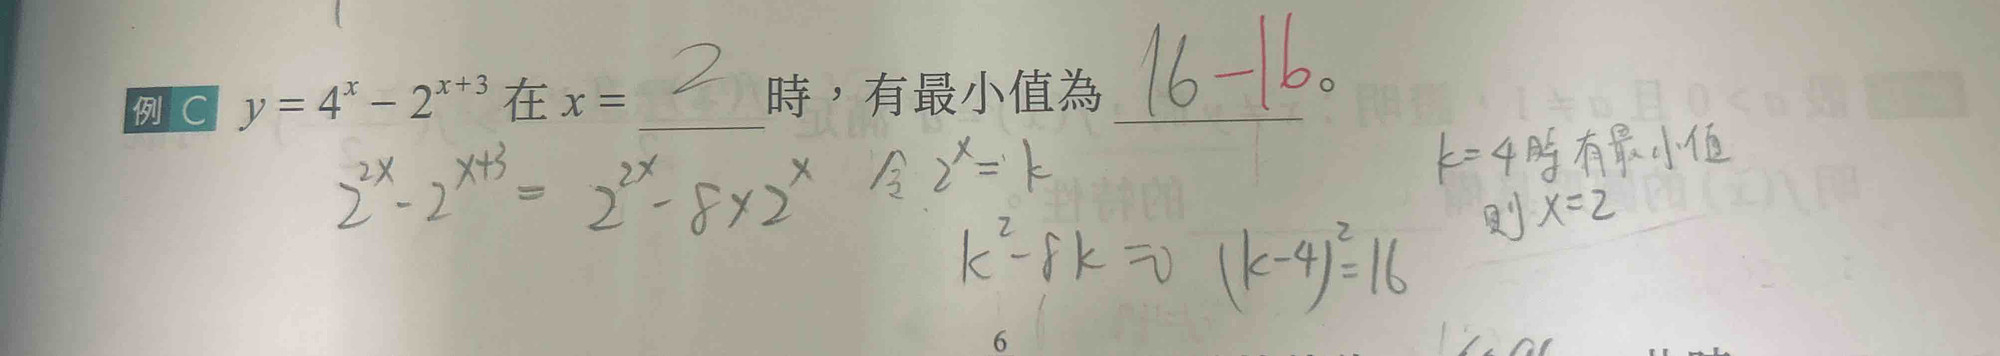 例 C y = 4^x − 2^{x+3} 在 x = 2 時，有最小值為 16 -16。
2^{2x} - 2^{x+3} = 2^{2x} - 8×2^x 令 2^x = k
k=4時有最小值
則 x=2
k^2 - 8k = 0 (k-4)^2 = 16
6